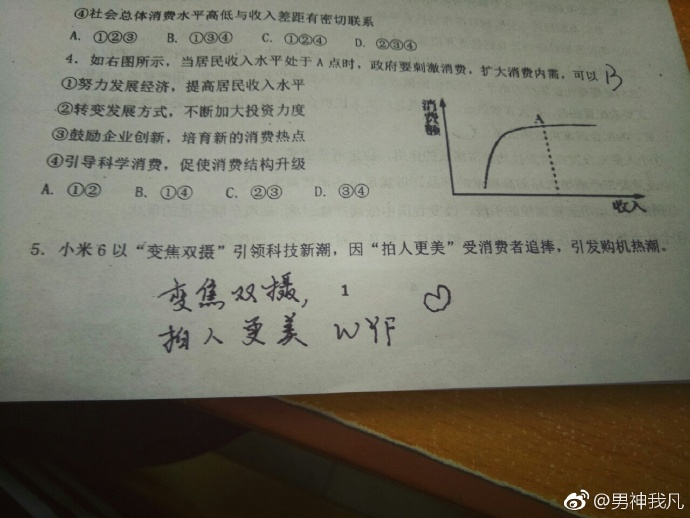 ④社会总体消费水平高低与收入差距有密切联系
A. ①②③ B. ①③④ C. ①②④ D. ②③④
4. 如右图所示，当居民收入水平处于A点时，政府要刺激消费，扩大消费内需，可以 B
①努力发展经济，提高居民收入水平
②转变发展方式，不断加大投资力度
③鼓励企业创新，培育新的消费热点
④引导科学消费，促使消费结构升级
A. ①② B. ①④ C. ②③ D. ③④
消费额
A
收入
5. 小米6以“变焦双摄”引领科技新潮，因“拍人更美”受消费者追捧，引发购机热潮。
变焦双摄， 1
拍人更美 WYF
@男神我凡